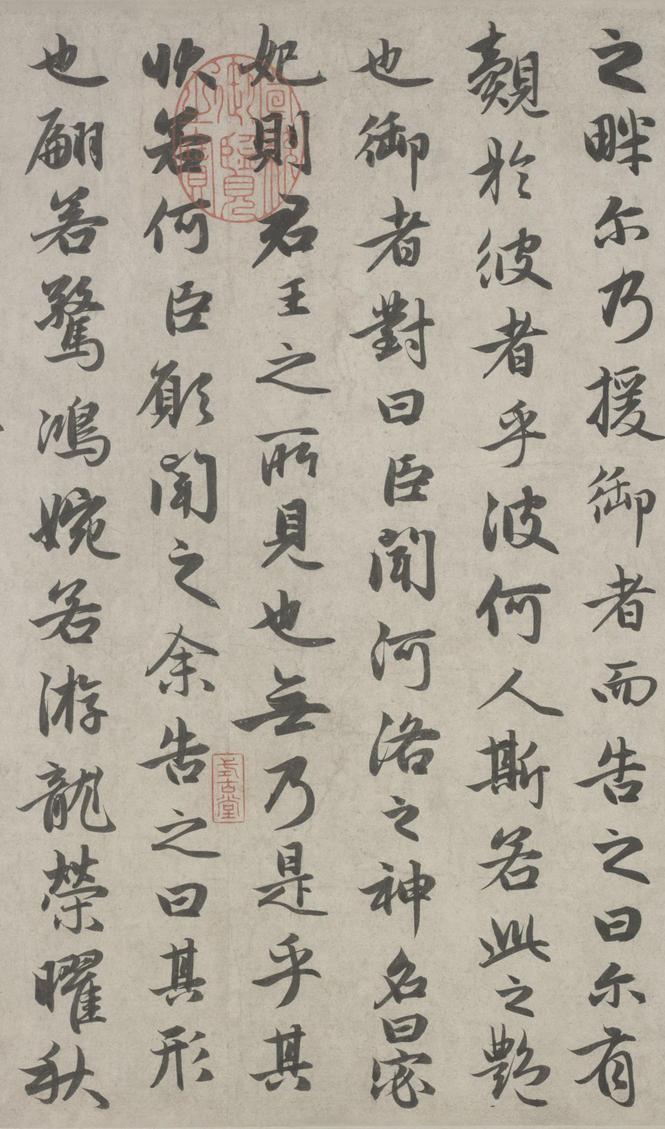 之畔尔乃援御者而告之曰尔有
覿於彼者乎波何人斯若此之艷
也御者對曰臣聞河洛之神名曰宓
妃則君王之所見也無乃是乎其
狀若何臣願聞之余告之曰其形
也翩若驚鴻婉若游龍榮曜秋
式古堂